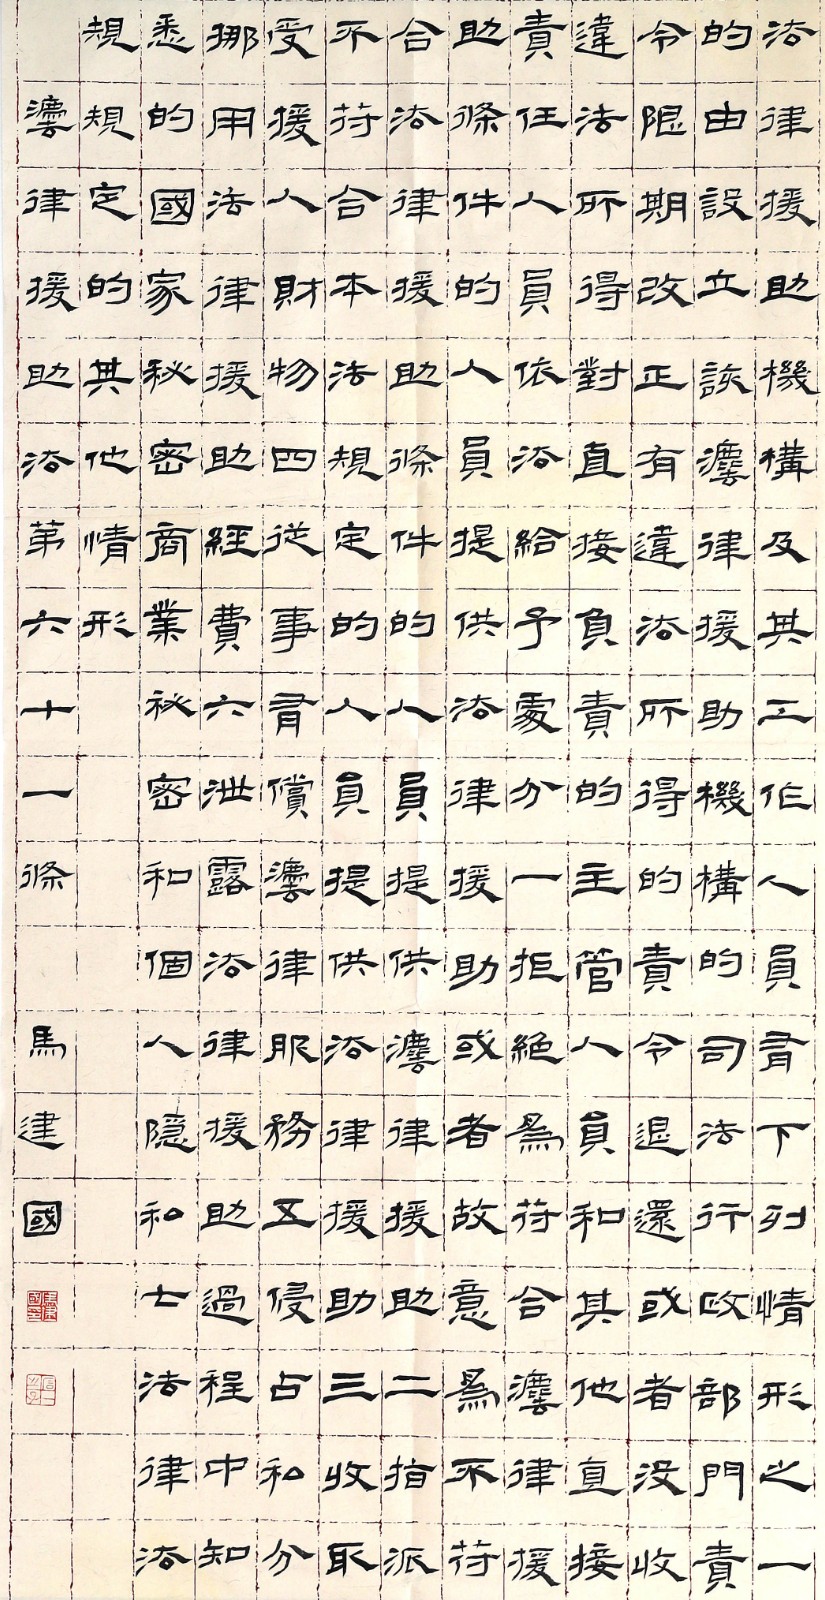 法律援助機構及其工作人員有下列情形之一
的由設立該灋律援助機構的司法行政部門責
令限期改正有違法所得的責令退還或者没收
違法所得對直接負責的主管人員和其他直接
責任人員依法給予處分一拒絕爲符合灋律援
助條件的人員提供法律援助或者故意爲不符
合法律援助條件的人員提供灋律援助二指派
不符合本法規定的人員提供法律援助三收取
受援人財物四從事有償灋律服務五侵占和分
挪用法律援助經費六泄露法律援助過程中知
悉的國家秘密商業祕密和個人隐和七法律法
規規定的其他情形
灋律援助法第六十一條 馬建國